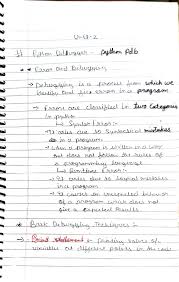 Unit-2
Python Debugger - Python Pdb
Error and Debugging
→ Debugging is a process from which we
identify and fix error in a program
→ Errors are classified in two Categories
in python
Syntax Error:-
It rises due to Syntactical mistakes
in a program.
when a program is written in a way
that does not follow the rules of
a programming language.
Runtime Error:-
It occurs due to logical mistakes
in a program.
It causes an unexpected behavior
of a program which does not
give a Expected Results
Basic Debugging Techniques :-
→ Print statement :- Printing values of
variables at different points in the code